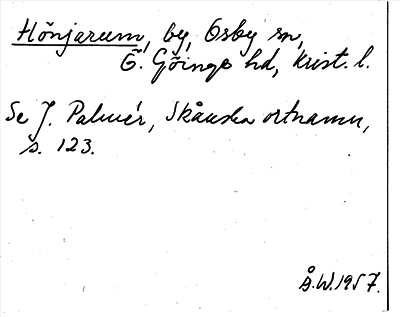 Hönjarum, by, Osby sn,
Ö. Göinge hd, Krist. l.
Se J. Palmér, Skånska ortnamn,
s. 123.
Å.W. 1957.